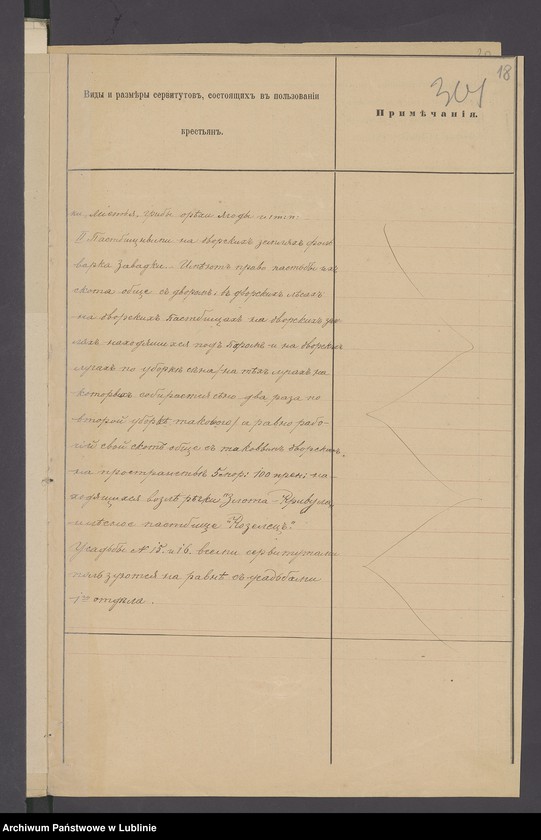 18
301
Виды и размѣры сервитутовъ, состоящихъ въ пользованіи
крестьянъ.
Примѣчанія.
листья, грибы орѣхи ягоды и т.п.
II Пастбищными на дворскихъ земляхъ фоль
варка Завадки. Имѣютъ право пастьбы
скота обще съ дворомъ, въ дворскихъ лѣсахъ
на дворскихъ пастбищахъ на дворскихъ
ляхъ находящихся подъ паромъ и на дворскихъ
лугахъ по уборкѣ сѣна/на тѣхъ лугахъ на
которыхъ собирается сѣно два раза по
второй уборкѣ таковаго/ а равно рабо-
чій свой скотъ обще съ таковымъ дворскимъ,
на пространствѣ 5 мор: 100 прен: на-
ходящихся возлѣ рѣки "Злота-Кривуля"
и лѣсное пастбище "Козелецъ".
Усадьбы № 15 и 16. всеми сервитутами
пользуются на равнѣ съ усадьбами
1го отдѣла.
Archiwum Państwowe w Lublinie